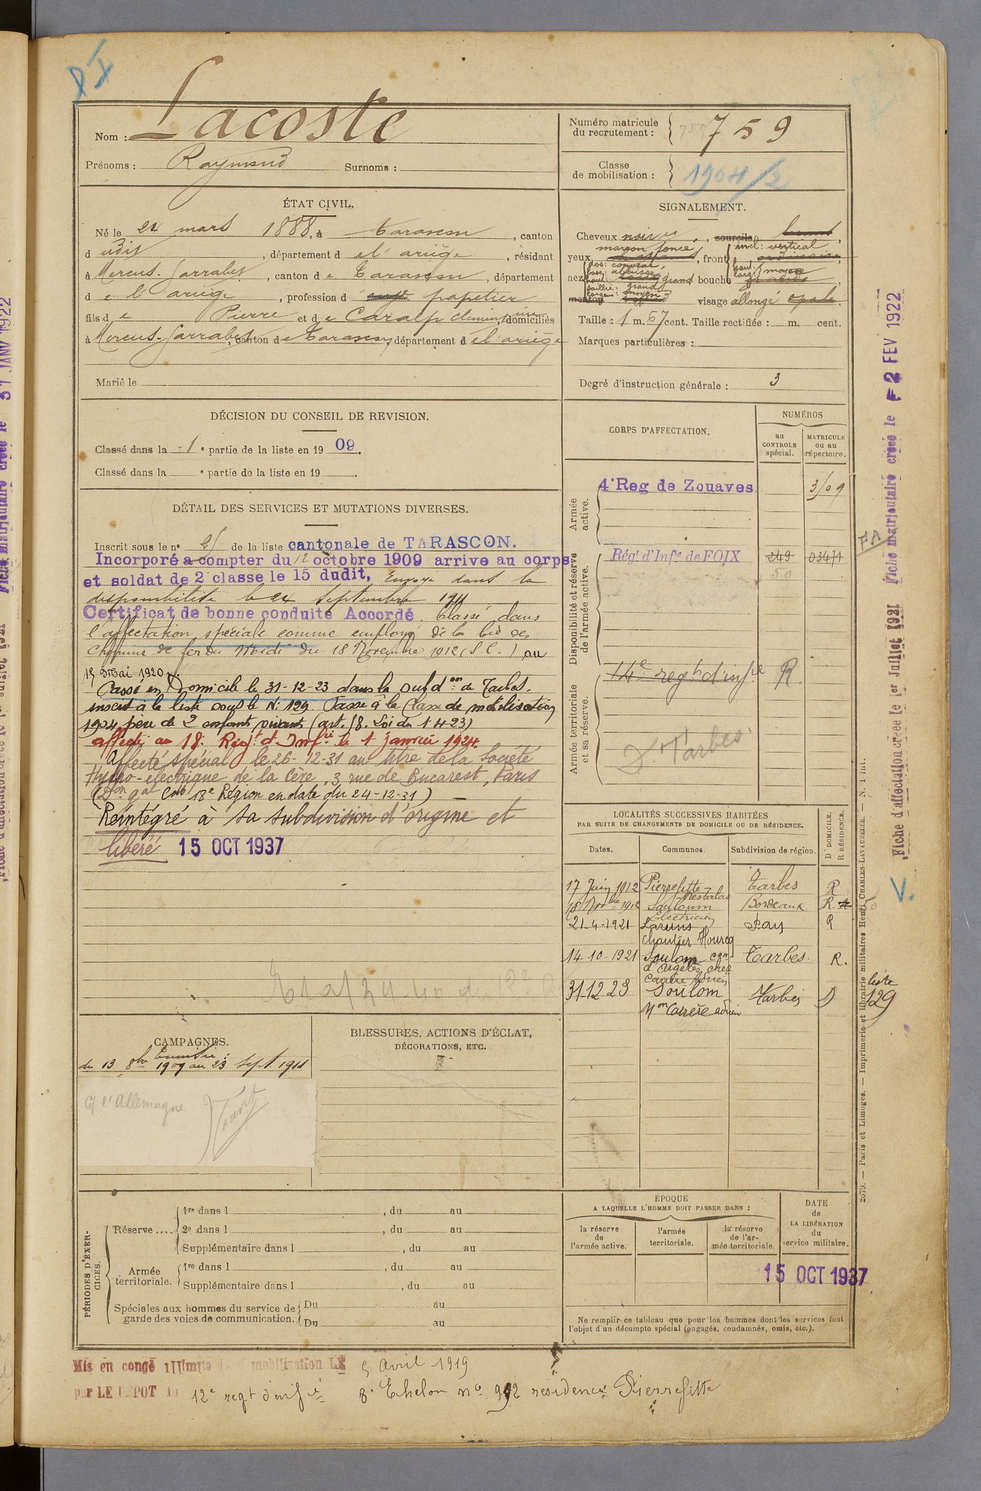 Nom : Lacoste
Prénoms : Raymond Surnoms :
Numéro matricule du recrutement : 759
Classe de mobilisation : 1904/2
ÉTAT CIVIL.
Né le 22 mars 1888, à Tarascon, canton
dudit, département de l'ariège, résidant
à Mercus-Garrabet, canton de Tarascon, département
de l'ariège, profession de papetier
fils de Pierre et de Caralp Clémence, domiciliés
à Mercus-Garrabet, canton de Tarascon, département de l'ariège
Marié le
SIGNALEMENT.
Cheveux noirs, sourcils
yeux marron foncé, front incl: vertical
nez grand bouche moyen
menton visage allongé ovale
Taille : 1 m. 67 cent. Taille rectifiée : m. cent.
Marques particulières :
Degré d'instruction générale : 3
DÉCISION DU CONSEIL DE REVISION.
Classé dans la 1e partie de la liste en 1909.
Classé dans la e partie de la liste en 19
DÉTAIL DES SERVICES ET MUTATIONS DIVERSES.
Inscrit sous le no de la liste cantonale de TARASCON.
Incorporé a compter du 12 octobre 1909 arrive au corps
et soldat de 2e classe le 15 dudit, Envoyé dans la
disponibilité le 24 septembre 1911
Certificat de bonne conduite Accordé. Classé dans
l'affectation spéciale comme employé de la Cie des
Chemins de fer du Midi du 18 Novembre 1912 (S.C.) au
15 Mai 1920
Passé en Domicile le 31-12-23 dans la subd.on de Tarbes.
inscrit à la liste sous le No 129. Passé à la Classe de mobilisation
1904 père de 2 enfants vivants (art. 58. Loi du 1-4-23)
affecté au 18e Régt d'Infie le 1 janvier 1924
Affecté spécial le 26-12-31 au titre de la Société
Hydro-électrique de la Cère, 3 rue de Bucarest, Paris
(Don gal Cmt 18e Région en date du 24-12-31)
Réintégré à sa subdivision d'origine et
libéré 15 OCT 1937
CORPS D'AFFECTATION.
NUMÉROS
au CONTROLE spécial.
MATRICULE ou au répertoire.
Armée active.
4e Reg de Zouaves 3/09
Disponibilité et réserve de l'armée active.
Régt d'Infie de FOIX 249 03471
50
Armée territoriale et sa réserve.
14e regt d'infie R.
D. Tarbes
LOCALITÉS SUCCESSIVES HABITÉES
PAR SUITE DE CHANGEMENTS DE DOMICILE OU DE RÉSIDENCE.
Dates. Communes. Subdivision de région. D DOMICILE. R RÉSIDENCE.
17 Juin 1912 Pierrefitte-Nestalas Tarbes R
18 Novbre 1912 Soulom Bordeaux R.
21-4-1921 Laruns Pau R
chantier Hourcq
14-10-1921 Soulom can d'Argelès chez Carrère Adrien Tarbes. R.
31-12-23 Soulom Tarbes D liste 129
Mon Carrère adrien
CAMPAGNES.
Tunisie :
du 13 8bre 1909 au 23 sept 1911
C/ l'Allemagne
BLESSURES, ACTIONS D'ÉCLAT,
DÉCORATIONS, ETC.
PÉRIODES D'EXERCICES.
Réserve....
1re dans l , du au
2e dans l , du au
Supplémentaire dans l , du au
Armée territoriale.
1re dans l , du au
Supplémentaire dans l , du au
Spéciales aux hommes du service de garde des voies de communication.
Du au
Du au
ÉPOQUE
A LAQUELLE L'HOMME DOIT PASSER DANS :
la réserve de l'armée active.
l'armée territoriale.
la réserve de l'armée territoriale.
DATE de LA LIBÉRATION du service militaire.
15 OCT 1937
Ne remplir ce tableau que pour les hommes dont les services font
l'objet d'un décompte spécial (engagés, condamnés, omis, etc.).
Mis en congé illimité de démobilisation LE 5 Avril 1919
par LE DEPOT du 12e regt d'infie 8e Echelon no 912 residence Pierrefitte
2579. — Paris et Limoges. — Imprimerie et librairie militaires Henri CHARLES-LAVAUZELLE. — N. 1 int.
Fiche d'affectation créée le 1er Juillet 1921
Fiche matriculaire créée le 2 FEV 1922
Fiche matriculaire créée le 31 JANV 1922